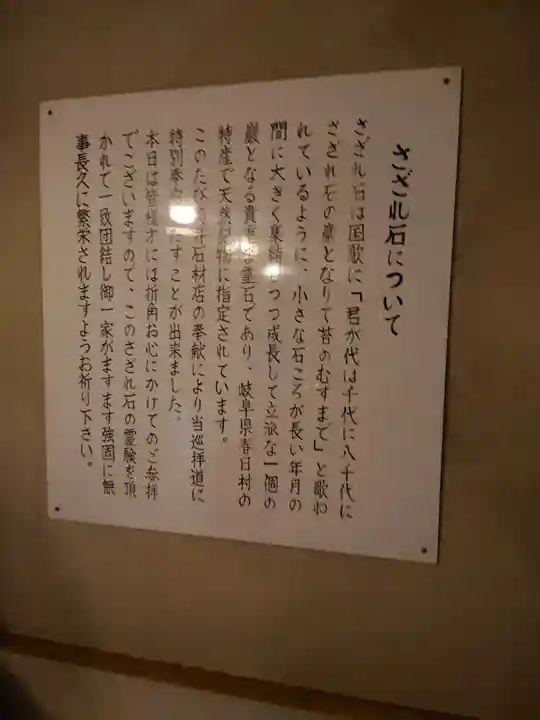 さざれ石について
さざれ石は国歌に「君が代は千代に八千代に
さざれ石の巌となりて苔のむすまで」と歌わ
れているように、小さな石ころが長い年月の
間に大きく集結しつつ成長して立派な一個の
巌となる貴重な霊石であり、岐阜県春日村の
特産で天然記物に指定されています。
このたび 石材店の奉献により当巡拝道に
特別奉 たすことが出来ました。
本日は皆様方には折角お心にかけてのご参拝
でございますので、このさざれ石の霊験を頂
かれて一致団結し御一家がますます強固に無
事長久に繁栄されますようお祈り下さい。